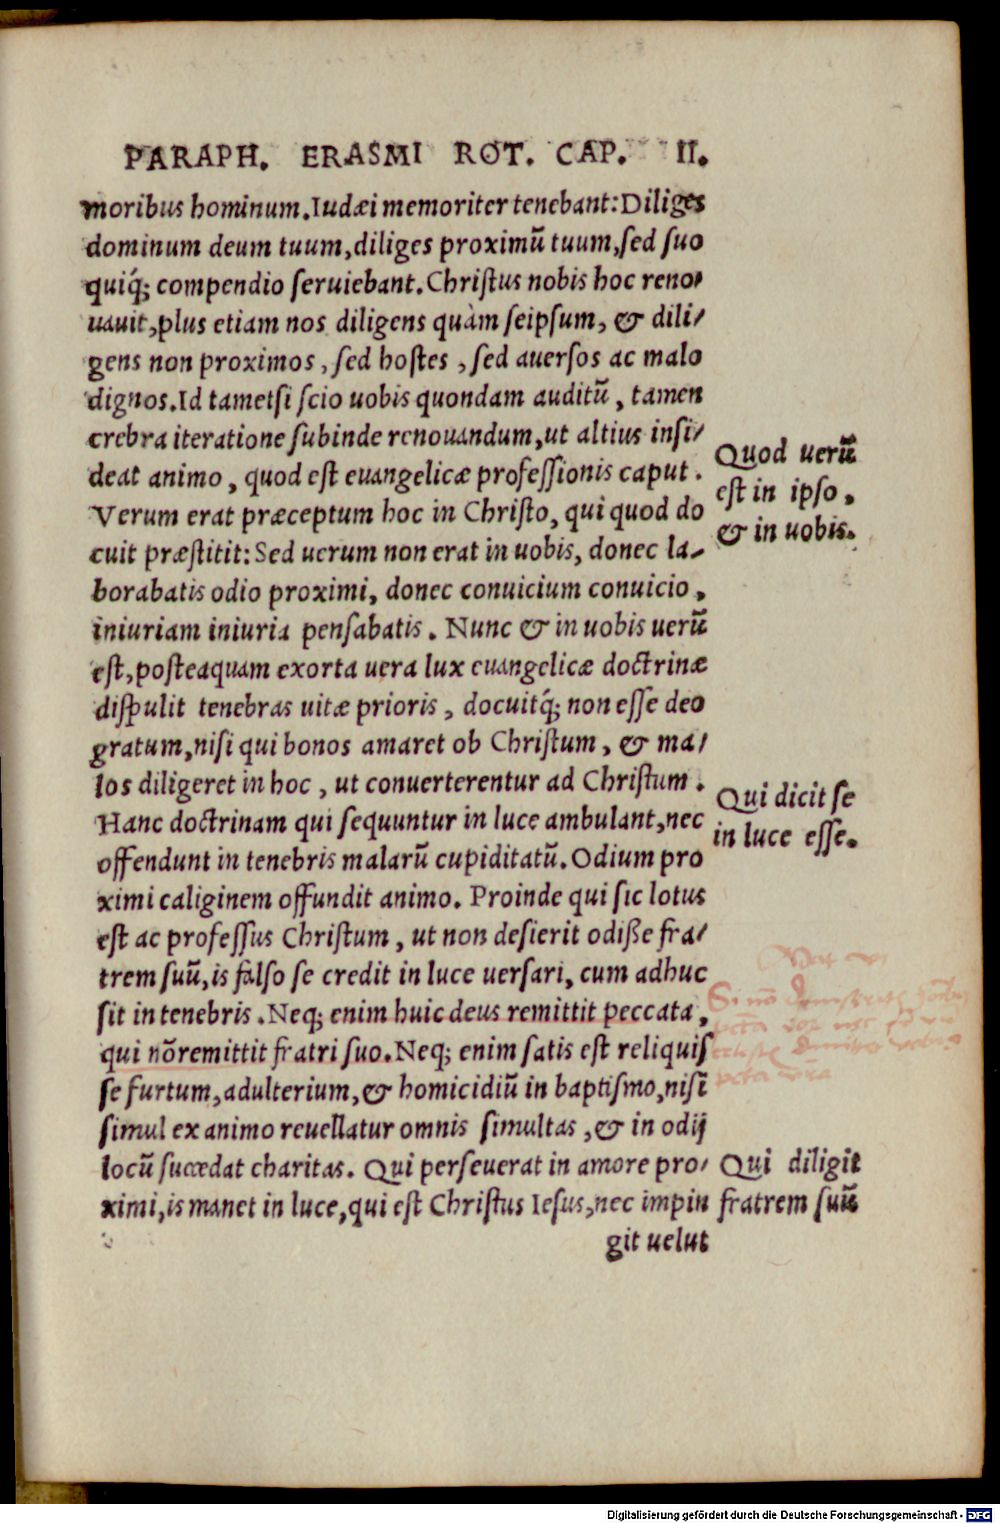 PARAPH. ERASMI ROT. CAP. II.
moribus hominum. Iudæi memoriter tenebant: Diliges
dominum deum tuum, diliges proximũ tuum, sed suo
quiq́; compendio seruiebant. Christus nobis hoc reno/
uauit, plus etiam nos diligens quàm seipsum, & dili/
gens non proximos, sed hostes, sed auersos ac malo
dignos. Id tametsi scio uobis quondam auditũ, tamen
crebra iteratione subinde renouandum, ut altius insi/
deat animo, quod est euangelicæ professionis caput.
Verum erat præceptum hoc in Christo, qui quod do
cuit præstitit: Sed uerum non erat in uobis, donec la/
borabatis odio proximi, donec conuicium conuicio,
iniuriam iniuria pensabatis. Nunc & in uobis uerũ
est, posteaquam exorta uera lux euangelicæ doctrinæ
dispulit tenebras uitæ prioris, docuitq́; non esse deo
gratum, nisi qui bonos amaret ob Christum, & ma/
los diligeret in hoc, ut conuerterentur ad Christum.
Hanc doctrinam qui sequuntur in luce ambulant, nec
offendunt in tenebris malarũ cupiditatũ. Odium pro
ximi caliginem offundit animo. Proinde qui sic lotus
est ac professus Christum, ut non desierit odiße fra/
trem suũ, is falso se credit in luce uersari, cum adhuc
sit in tenebris. Neq; enim huic deus remittit peccata,
qui nõ remittit fratri suo. Neq; enim satis est reliquis
se furtum, adulterium, & homicidiũ in baptismo, nisi
simul ex animo reuellatur omnis simultas, & in odij
locũ succedat charitas. Qui perseuerat in amore pro/
ximi, is manet in luce, qui est Christus Iesus, nec impin
git uelut
Quod uerũ
est in ipso,
& in uobis.
Qui dicit se
in luce esse.
Qui diligit
fratrem suũ
Digitalisierung gefördert durch die Deutsche Forschungsgemeinschaft - DFG